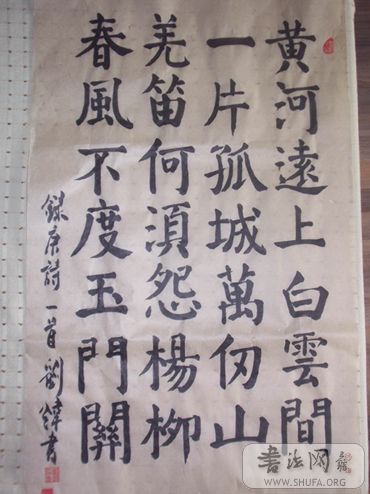 黄河遠上白雲間
一片孤城萬仞山
羌笛何須怨楊柳
春風不度玉門關
錄唐詩一首 劉書
书法网
WWW.SHUFA.ORG